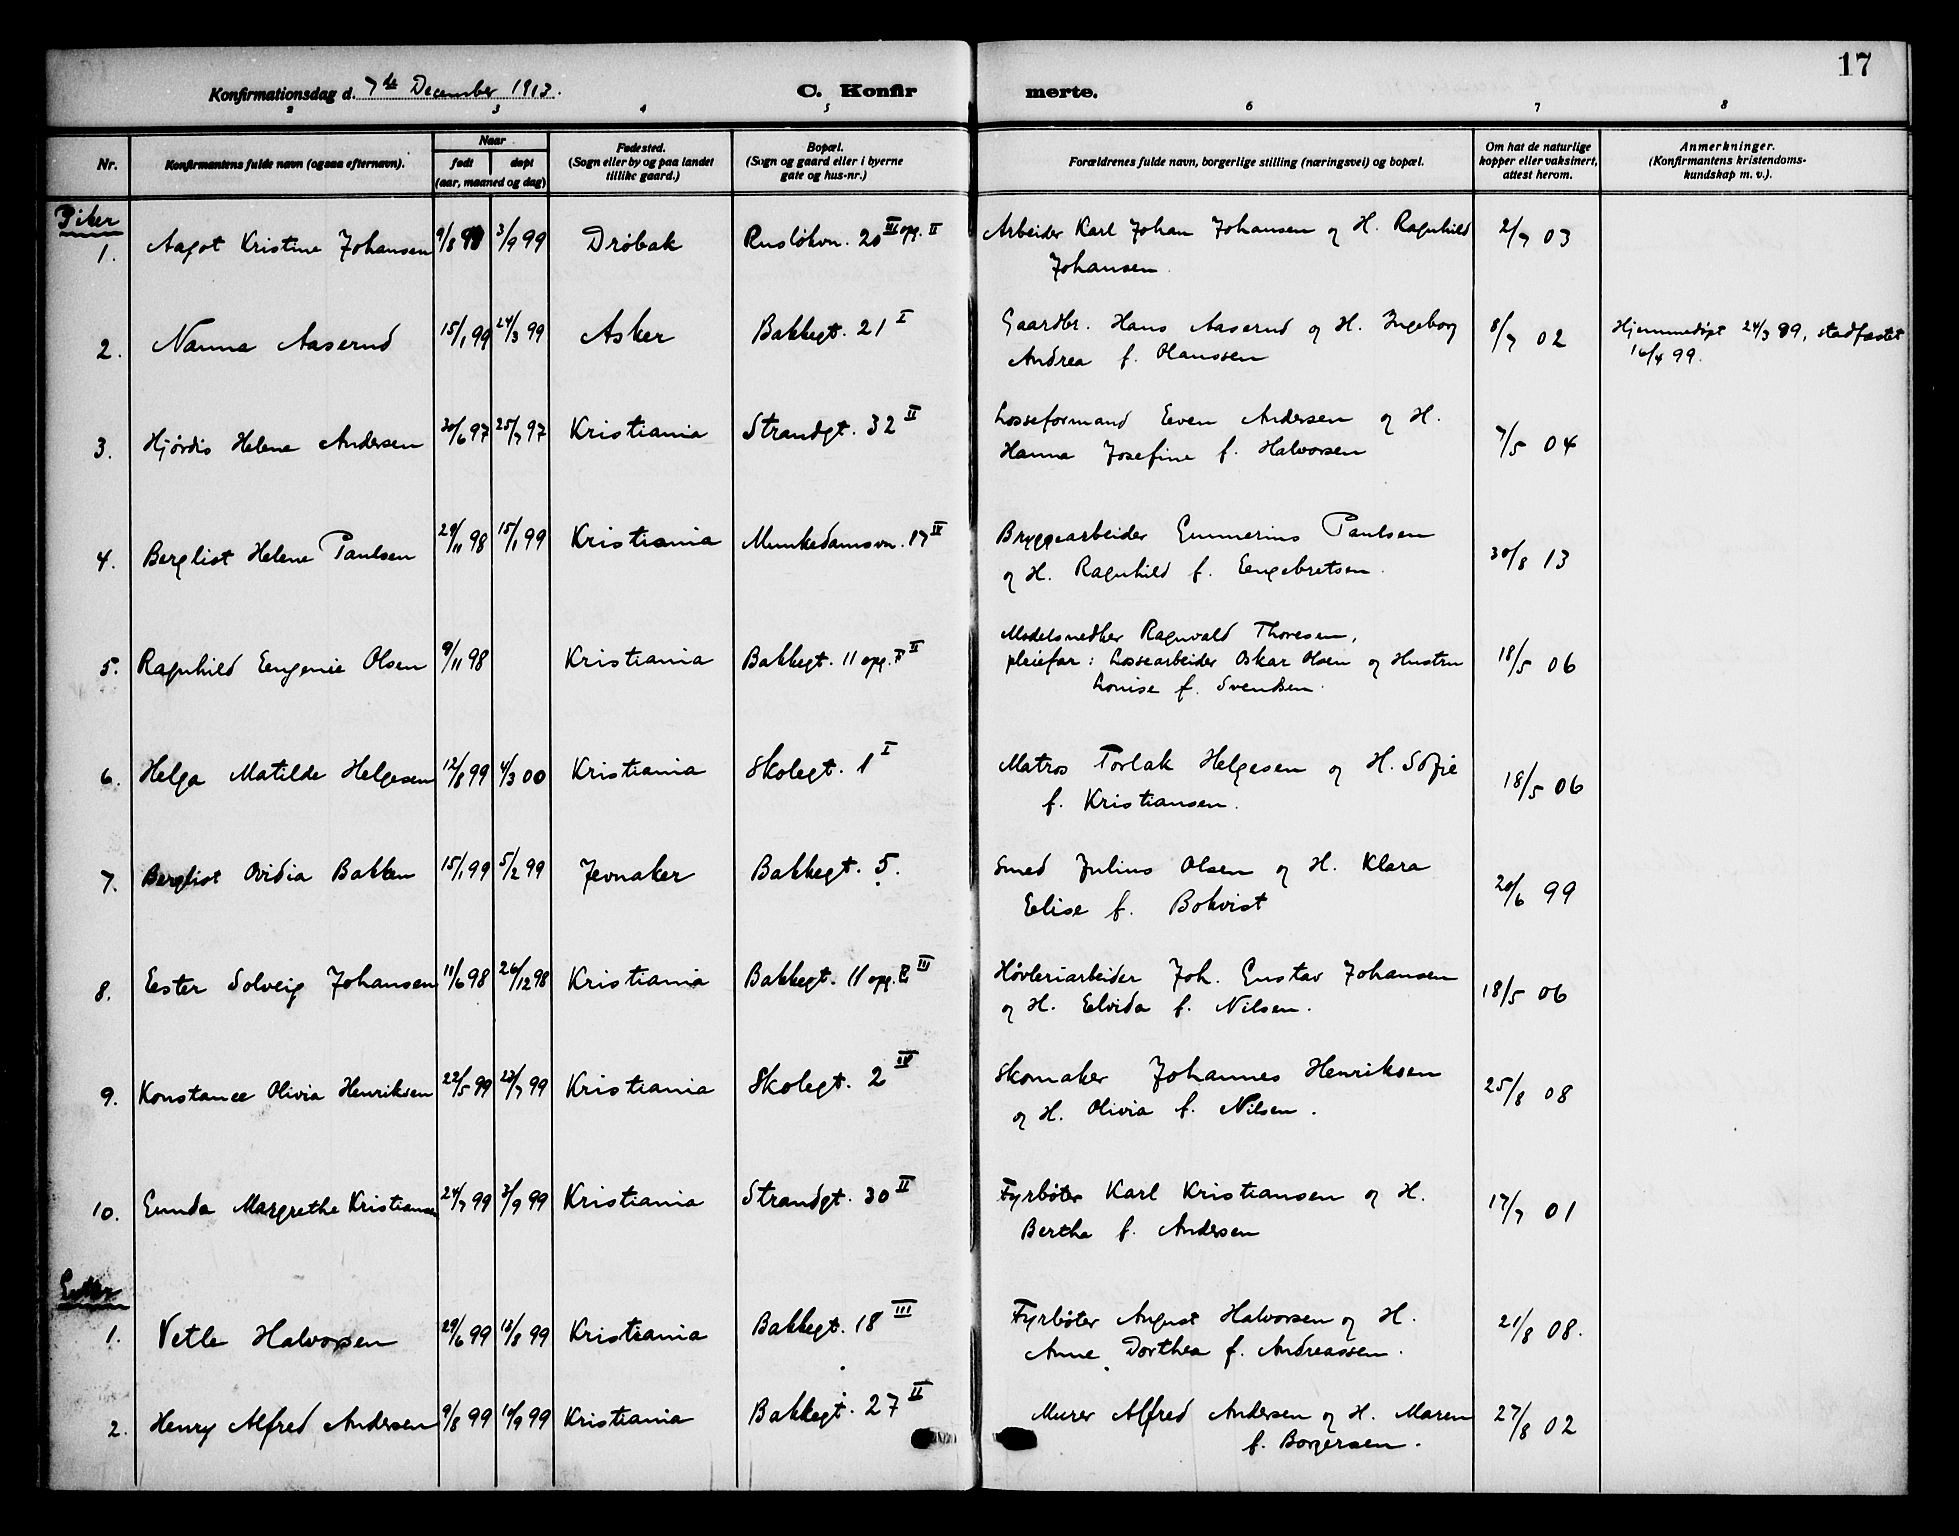 17
Konfirmationsdag d. 7de December 1913. C. Konfir merte.
2 3 4 5 6 7 8
Nr. Konfirmantens fulde navn (ogsaa efternavn). Naar født døpt (aar, maaned og dag) Fødested. (Sogn eller by og paa landet tillike gaard.) Bopæl. (Sogn og gaard eller i byerne gate og hus-nr.) Forældrenes fulde navn, borgerlige stilling (næringsvei) og bopæl. Om hat de naturlige kopper eller vaksinert, attest herom. Anmerkninger. (Konfirmantens kristendoms-kundskap m. v.).
Piker
1. Aagot Kristine Johansen 9/8 99 3/9 99 Drøbak Rusløkvn. 20 III opg. II Arbeider Karl Johan Johansen og H. Ragnhild 2/7 03
Johansen.
2. Nanna Aaserud 15/1 99 24/3 99 Asker Bakkegt. 21 I Gaardbr. Hans Aaserud og H. Ingeborg 8/7 02 Hjemmedøpt 24/3 99, stadfæstet
Andrea f. Olaussen 16/4 99.
3. Hjørdis Helene Andersen 30/6 97 25/7 97 Kristiania Strandgt. 32 II Losseformand Even Andersen og H. 7/5 04
Hanna Josefine f. Halvorsen
4. Bergliot Helene Paulsen 29/11 98 15/1 99 Kristiania Munkedamsvn. 17 IV Bryggearbeider Gunnerius Paulsen 30/8 13
og H. Ragnhild f. Engebretsen.
5. Ragnhild Eugenie Olsen 9/11 98 Kristiania Bakkegt. 11 opg. I II Modelsnedker Ragnvald Thoresen, 18/5 06
pleiefar: Lossearbeider Oskar Olsen og Hustru
Louise f. Svendsen.
6. Helga Matilde Helgesen 12/8 99 4/3 00 Kristiania Skolegt. 1 I Matros Torlak Helgesen og H. Sofie 18/5 06
f. Kristiansen.
7. Bergliot Ovidia Bakken 15/1 99 5/2 99 Jevnaker Bakkegt. 5. Smed Julius Olsen og H. Klara 20/6 99
Elise f. Bokvist
8. Ester Solveig Johansen 11/6 98 26/12 98 Kristiania Bakkegt. 11 opg. III Høvleriarbeider Joh. Gustav Johansen 18/5 06
og H. Elvida f. Nilsen.
9. Konstance Olivia Henriksen 22/5 99 23/7 99 Kristiania Skolegt. 2 IV Skomaker Johannes Henriksen 25/8 08
og H. Olivia f. Nilsen.
10. Gunda Margrethe Kristiansen 24/7 99 3/9 99 Kristiania Strandgt. 30 II Fyrbøter Karl Kristiansen og H. 17/7 01
Bertha f. Andersen
Gutter
1. Vetle Halvorsen 29/6 99 13/8 99 Kristiania Bakkegt. 18 III Fyrbøter August Halvorsen og H. 21/8 08.
Anne Dorthea f. Andreassen.
2. Henry Alfred Andersen 9/8 99 10/9 99 Kristiania Bakkegt. 27 II Murer Alfred Andersen og H. Maren 27/8 02
f. Borgersen.